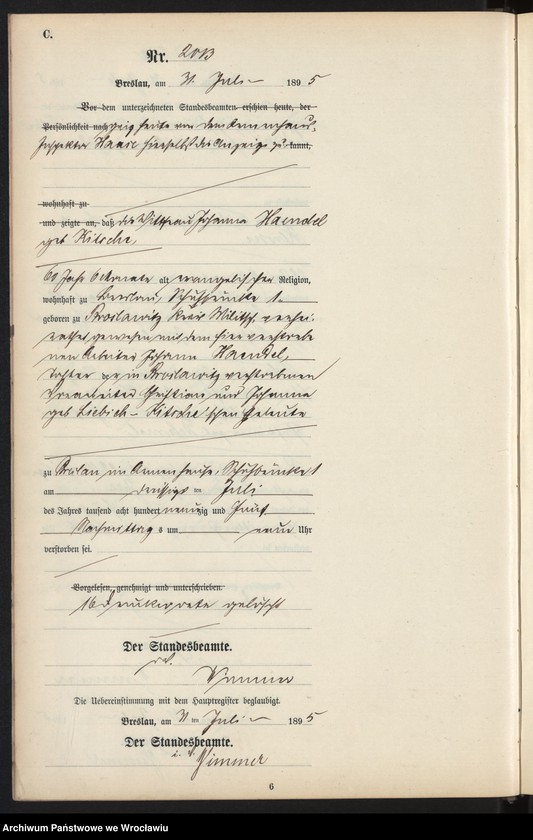 C.
Nr. 2013
Breslau, am 31. Juli 1895
Vor dem unterzeichneten Standesbeamten erschien heute, der
Persönlichkeit nach zeigte heute von dem Armenhaus-
Inspektor Haase hierselbst die Anzeige zu kannt,
wohnhaft zu
und zeigte an, daß die Wittfrau Johanna Haendel
geb Kitsche,
60 Jahr 6 Monate alt, evangelischer Religion,
wohnhaft zu Breslau, Schuhbrücke 1.
geboren zu Broslawitz Kreis Militsch, verhei-
rathet gewesen mit dem hier verstorbe
nen Arbeiter Johann Haendel,
Tochter der in Broslawitz verstorbenen
Christian und Johanna
geb Liebich - Kitsche'schen Eheleute
zu Breslau im Armenhause, Schuhbrücke 1
am dreißigsten Juli
des Jahres tausend acht hundert neunzig und fünf
Nachmittags um neun Uhr
verstorben sei.
Vorgelesen, genehmigt und unterschrieben.
16 Druckworte gelöscht
Der Standesbeamte.
Die Uebereinstimmung mit dem Hauptregister beglaubigt.
Breslau, am 31 ten Juli 1895
Der Standesbeamte.
i. V.
6
Archiwum Państwowe we Wrocławiu